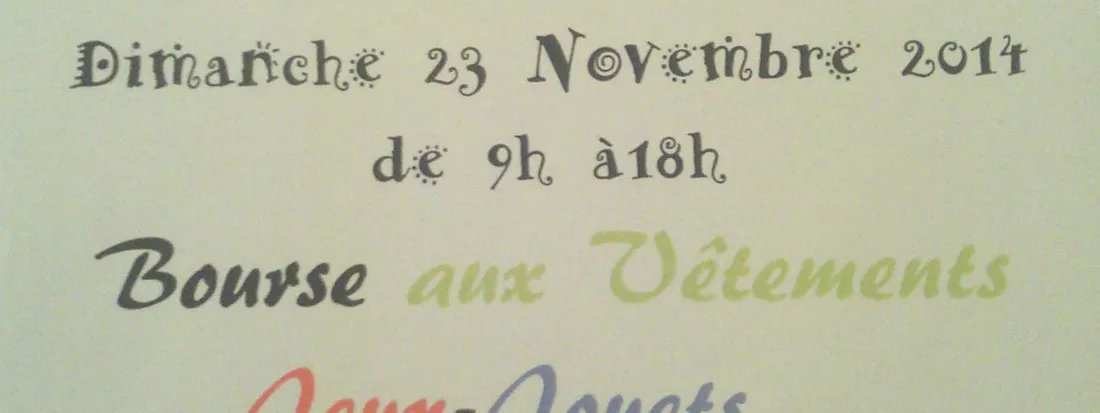 Dimanche 23 Novembre 2014
de 9h à18h
Bourse aux Vêtements
Jeux-Jouets